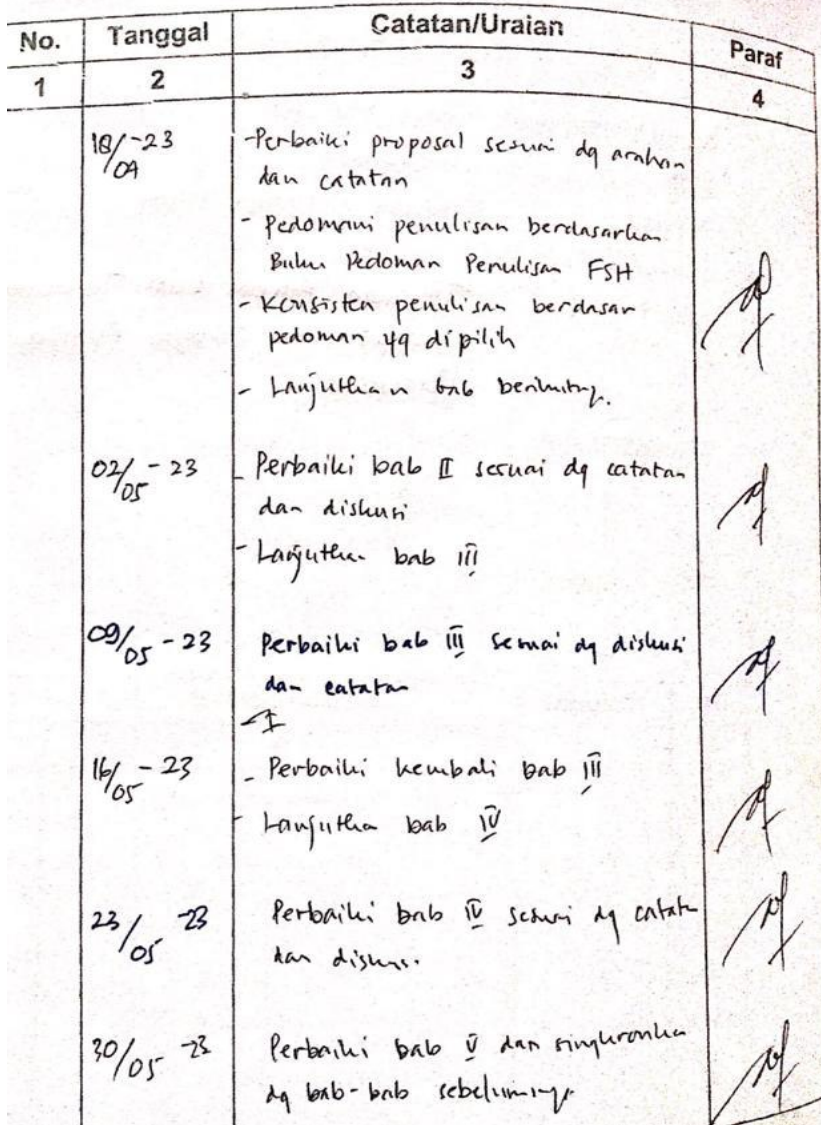 No. Tanggal Catatan/Uraian Paraf
1 2 3 4
18/04 -23 -Perbaiki proposal sesuai dg arahan
dan catatan
- Pedomani penulisan berdasarkan
Buku Pedoman Penulisan FSH
- Konsisten penulisan berdasar
pedoman yg dipilih
- Lanjutkan bab berikutnya.
02/05 - 23 - Perbaiki bab II sesuai dg catatan
dan diskusi
- Lanjutkan bab III
09/05 - 23 Perbaiki bab III sesuai dg diskusi
dan catatan
16/05 - 23 - Perbaiki kembali bab III
- Lanjutkan bab IV
23/05 -23 Perbaiki bab IV sesuai dg catatan
dan diskusi.
30/05 -23 Perbaiki bab V dan singkronkan
dg bab-bab sebelumnya